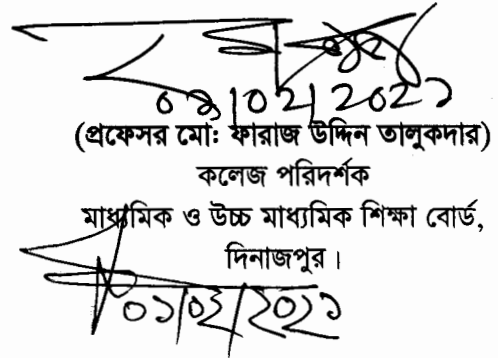 ০১/০২/২০২১
(প্রফেসর মো: ফারাজ উদ্দিন তালুকদার)
কলেজ পরিদর্শক
মাধ্যমিক ও উচ্চ মাধ্যমিক শিক্ষা বোর্ড,
দিনাজপুর।
০১/০২/২০২১